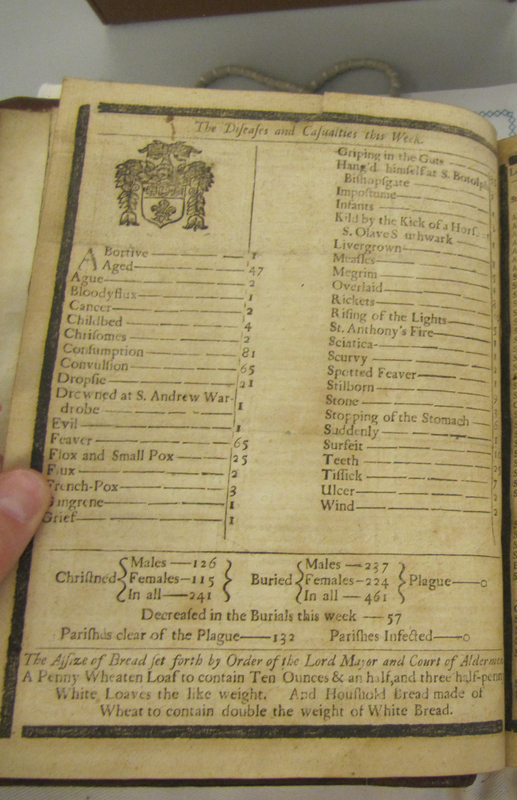 The Diseases and Casualties this Week.
ABortive — 1
Aged — 47
Ague — 2
Bloodyflux — 1
Cancer — 2
Childbed — 4
Chrisomes — 2
Consumption — 81
Convulsion — 65
Dropsie — 21
Drowned at S. Andrew War-
drobe — 1
Evil — 1
Feaver — 65
Flox and Small Pox — 25
Flux — 2
French-Pox — 3
Gangrene — 1
Grief — 1
Griping in the Guts
Hang'd himself at S. Botolph
Bishopsgate
Impostume
Infants
Kild by the Kick of a Horse
S. Olave Southwark
Livergrown
Measles
Megrim
Overlaid
Rickets
Rising of the Lights
St. Anthony's Fire
Sciatica
Scurvy
Spotted Feaver
Stilborn
Stone
Stopping of the Stomach
Suddenly
Surfeit
Teeth
Tissick
Ulcer
Wind
Christned { Males — 126 } Buried { Males — 237 } Plague — 0
Females — 115 Females — 224
In all — 241 In all — 461
Decreased in the Burials this week — 57
Parishes clear of the Plague — 132 Parishes Infected — 0
The Assize of Bread set forth by Order of the Lord Mayor and Court of Aldermen
A Penny Wheaten Loaf to contain Ten Ounces & an half, and three half-penny
White Loaves the like weight. And Houshold Bread made of
Wheat to contain double the weight of White Bread.